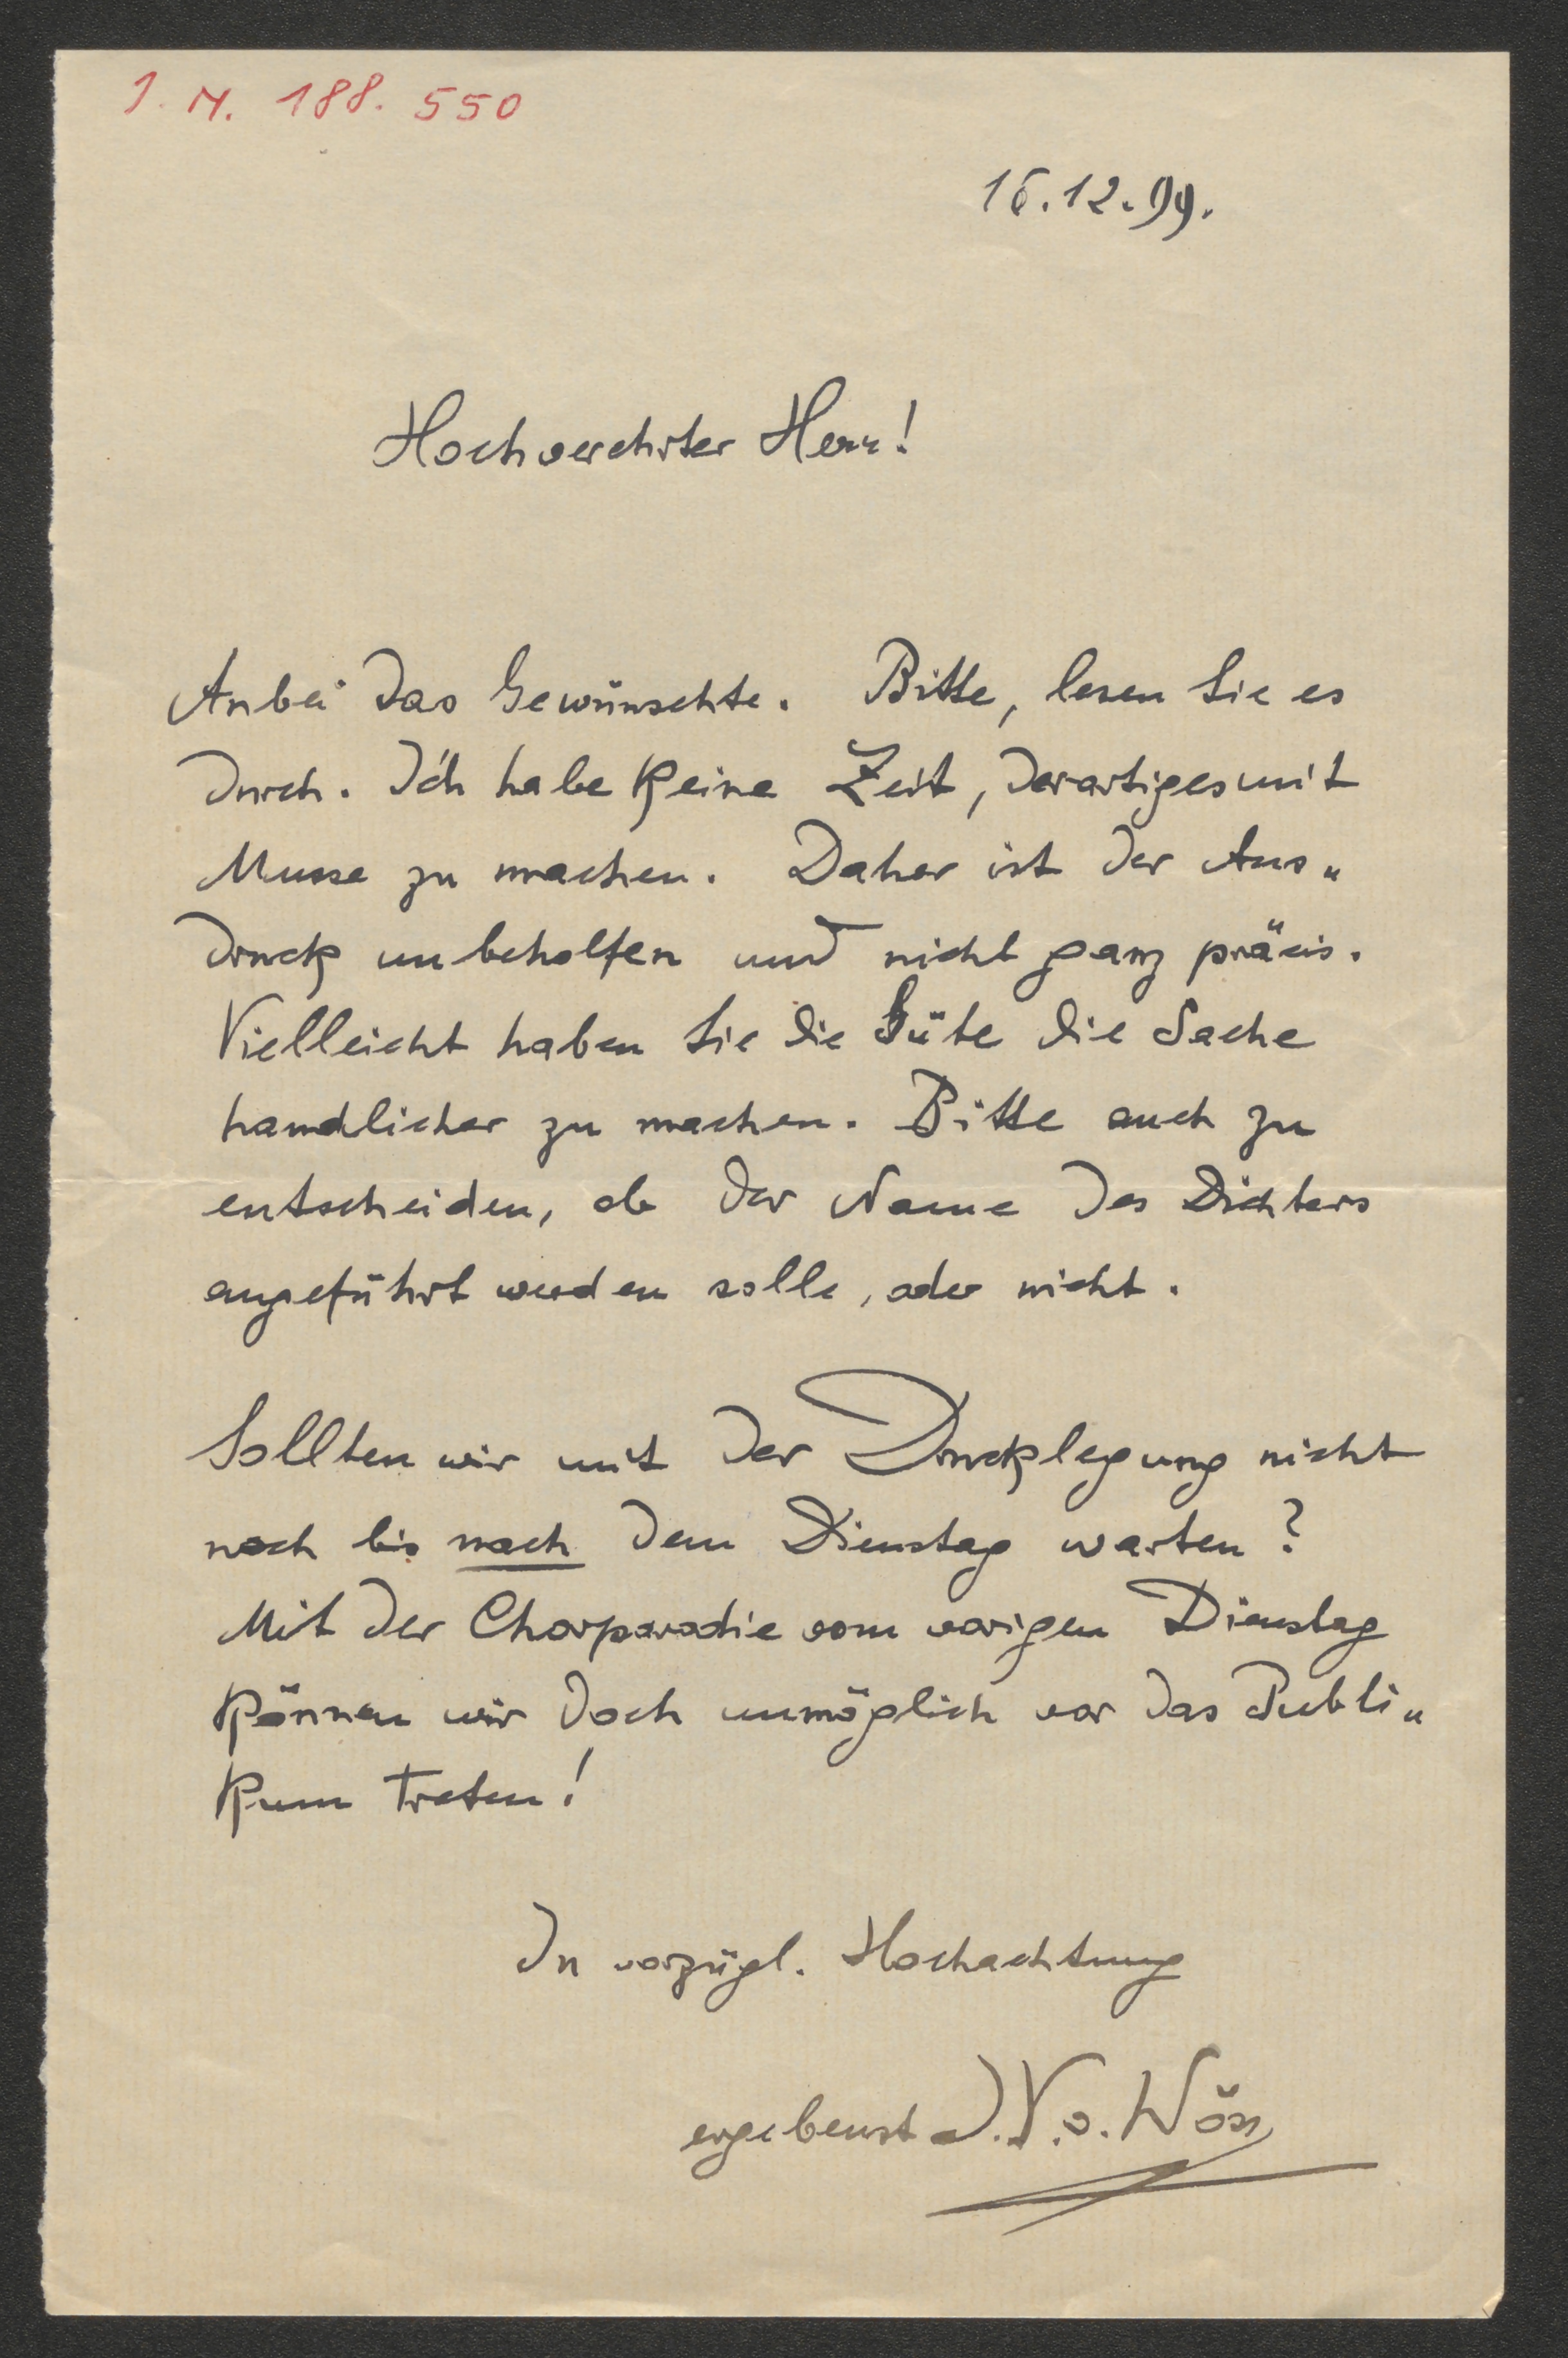 J. N. 188.550
16.12.99.
Hochverehrter Herr!
Anbei das Gewünschte. Bitte, lesen Sie es
durch. Ich habe keine Zeit, derartiges mit
Musse zu machen. Daher ist der Aus„
druck unbeholfen und nicht ganz präcis.
Vielleicht haben Sie die Güte die Sache
handlicher zu machen. Bitte auch zu
entscheiden, ob der Name des Dichters
angeführt werden solle, oder nicht.
Sollten wir mit der Drucklegung nicht
noch bis nach dem Dienstag warten?
Mit der Chorparodie vom vorigen Dienstag
können wir doch unmöglich vor das Publi„
kum treten!
In vorzügl. Hochachtung
ergebenst J. V. v. Wöss